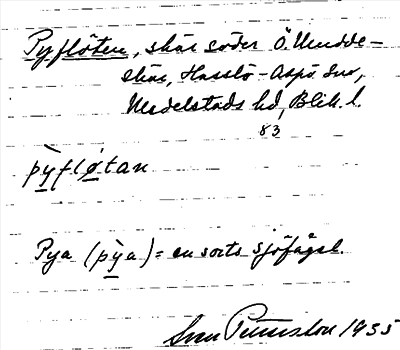 Pyflöten, skär söder Ö. Mudde-
skär, Hasslö-Aspö snr,
Medelstads hd, Blek. l.
83
pỳflø̀tan
Pya (pỳa) = en sorts sjöfågel.
1935